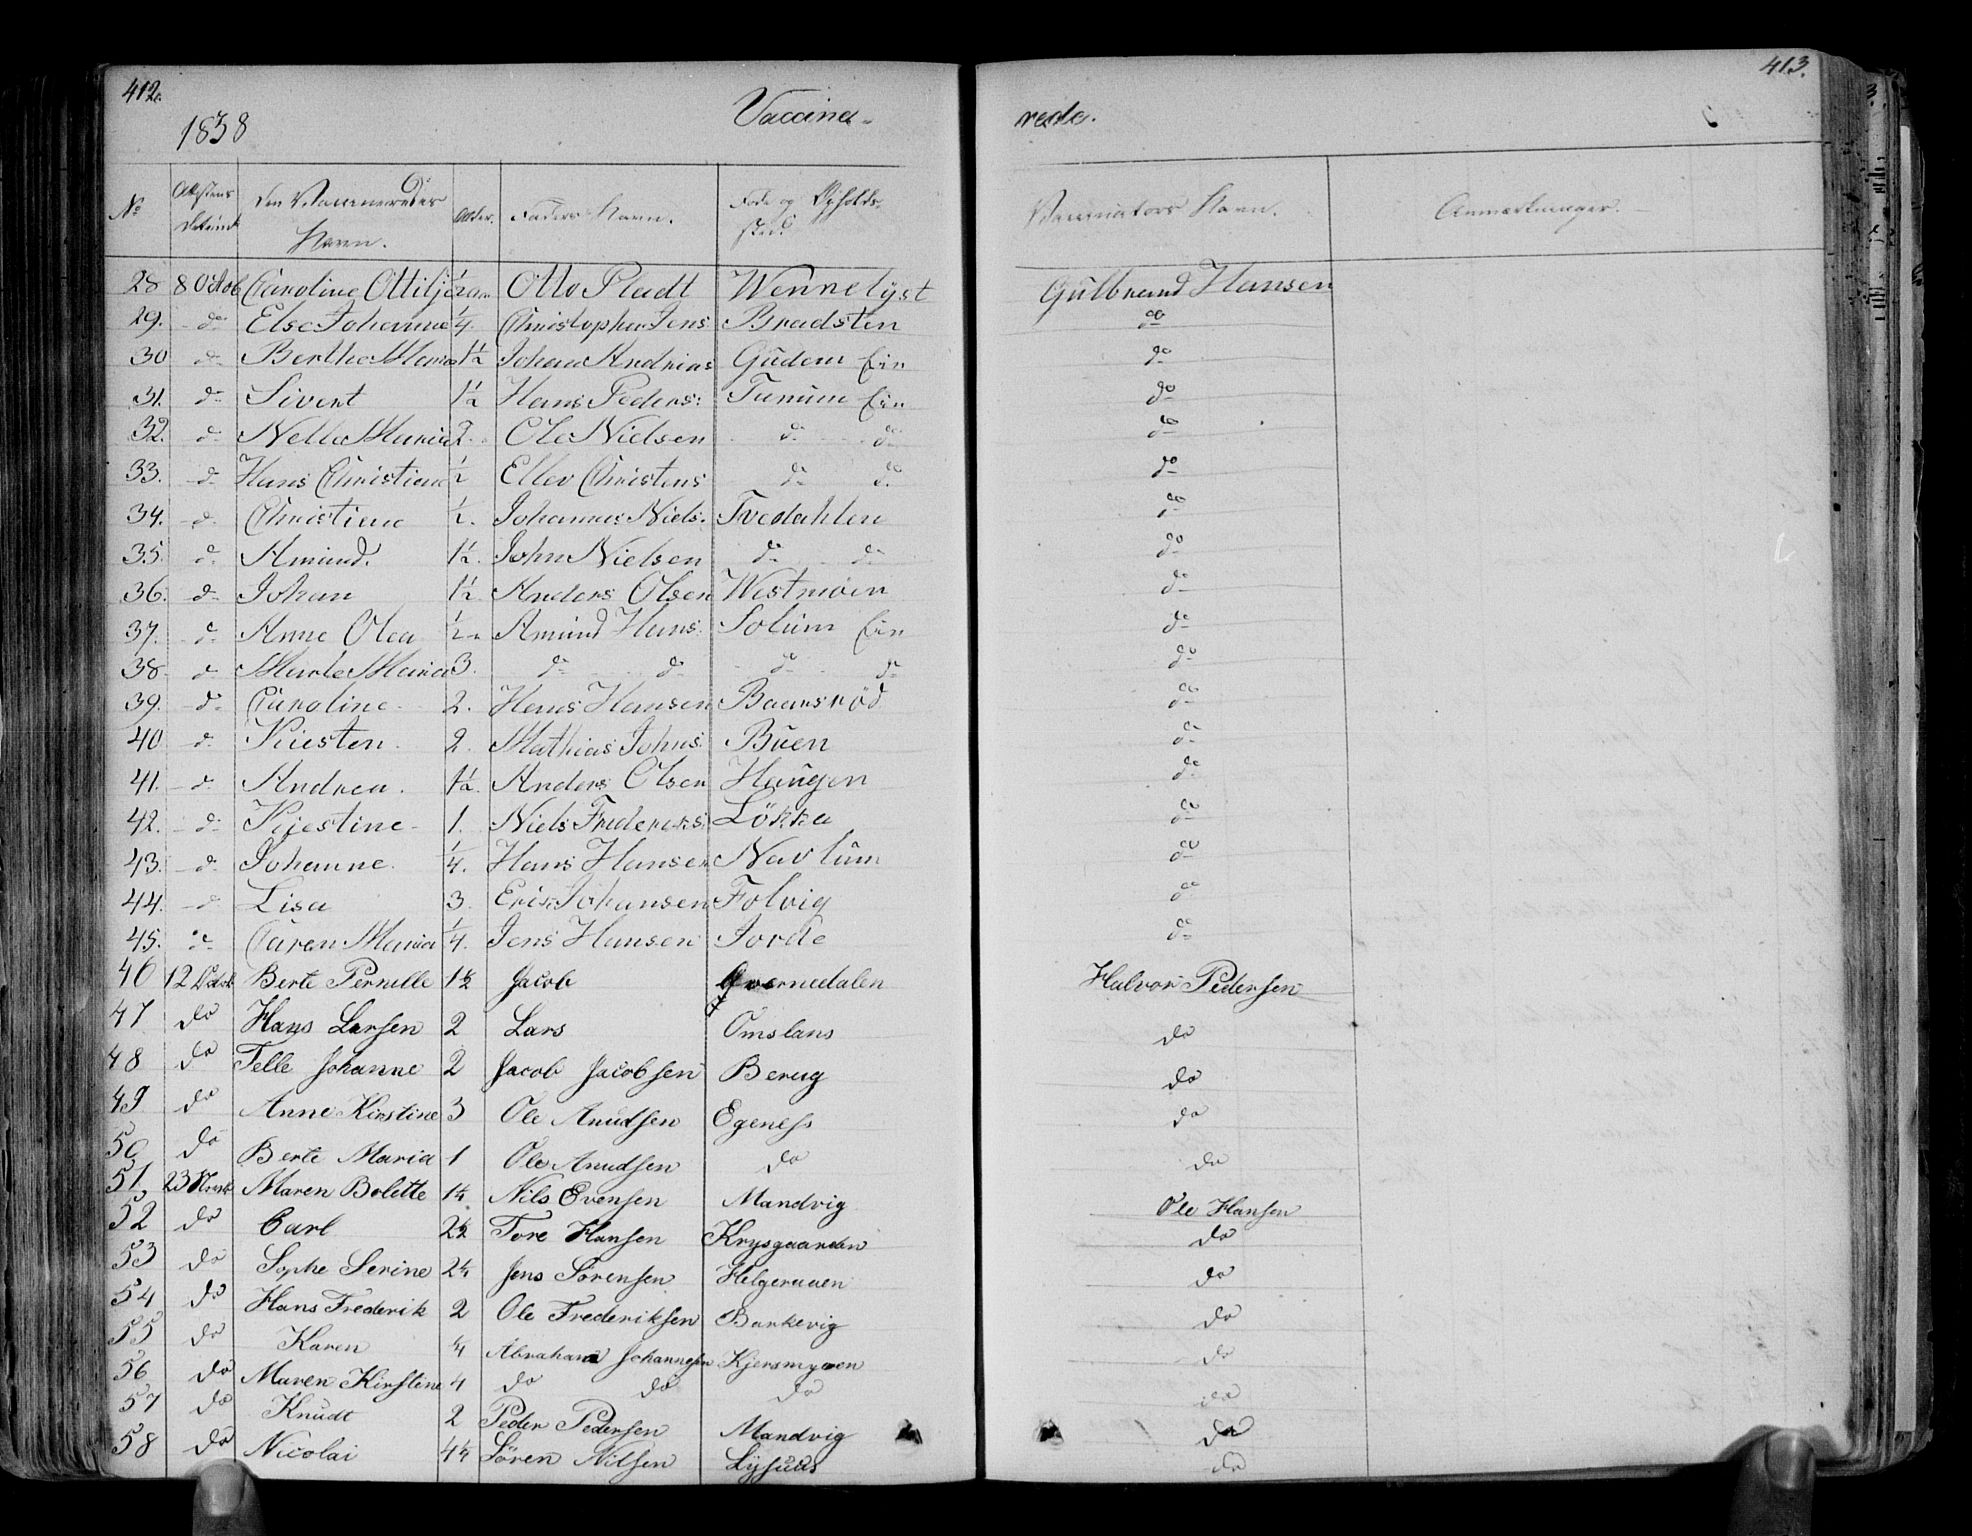 412. 413.
1838 Vaccine- rede.
No Attestens Datum Den Vaccineredes Navn. Alder. Faders Navn. Føde og Opholds- sted. Vaccinators Navn. Anmærkninger.
28 8 Octob Caroline Ottilje ½ Otto Pladt Wennelyst Gulbrand Hansen
29. do Else Johanne ¼. Christopher Jens: Bradsten do
30 do Berthe Maria 1½ Johan Andreas Gudem Eie do
31. do Sivert 1½ Hans Peders: Tunum Eie do
32. do Nelle Maria 2. Ole Nielsen do do do
33. do Hans Christian ½ Ellev Christens: do do do
34. do Christiane ½. Johannes Niels: Tvedahlen do
35. do Amund. 1½. John Nielsen do do do
36. do Johan 1½ Anders Olsen Westmøen do
37. do Anne Olea ½ Amund Hans: Solum Eie do
38. do Marte Maria 3. do do do do do
39. do Caroline 2. Hans Hansen Baansrød do
40 do Kiesten. 2. Mathias Johns: Buen do
41. do Andrea. 1½. Anders Olsen Haugen do
42. do Kjestine 1. Niels Frederiks: Løkka do
43. do Johanne. ¼. Hans Hansen Navlum do
44. do Lisa 3. Erik Johansen Folvig do
45. do Caren Maria ¼. Jens Hansen Jorde do
46 12 Octob Berte Pernille 1½ Jacob Qvernedalen Halvor Pedersen
47 do Hans Larsen 2 Lars Omslans do
48 do Telle Johanne 2 Jacob Jacobsen Berug do
49 do Anne Kirstine 3 Ole Anudsen Egeness do
50 do Berte Maria 1 Ole Anudsen do do
51 23 Maren Bolette 1¼ Nils Evensen Mandvig Ole Hansen
52 do Carl 2½ Tore Hansen Krysgaarden do
53 do Sophe Serine 2¼ Jens Sørensen Helgeraaen do
54 do Hans Frederik 2 Ole Frederiksen Barkevig do
55 do Karen ¼ Abraham Johannesen Kjersmyren do
56 do Maren Kirstine 4 do do do do
57 do Knudt 2 Peder Pedersen Mandvig do
58 do Nicolai 4¼ Søren Nilsen do